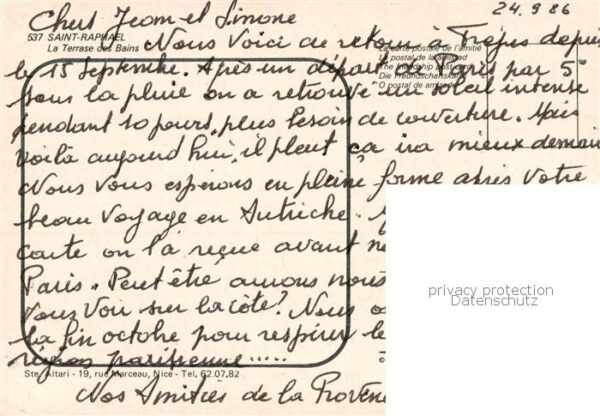 24.9.86
Chers Jean et Simone
537 SAINT-RAPHAËL
La Terrase des Bains
Nous voici de retour à Fréjus depuis
La carte postale de l'amitié
La postal de la amistad
The friendship post card
Die Freundschaftskarte
O postal de amizade
le 15 Septembre. Après un départ de Paris par 5°
sous la pluie on a retrouvé le soleil intense
pendant 10 jours, plus besoin de couverture. Mais
voilà aujourd'hui, il pleut ça ira mieux demain
Nous vous espérons en pleine forme après votre
beau voyage en Autriche.
carte on l'a reçue avant
Paris. Peut être aurons nous
vous voir sur la côte? Nous
la fin octobre pour respirer le
région parisienne .....
privacy protection
Datenschutz
Ste. Altari - 19, rue Marceau, Nice - Tel. 62.07.82
Nos Amitiés de la Provence